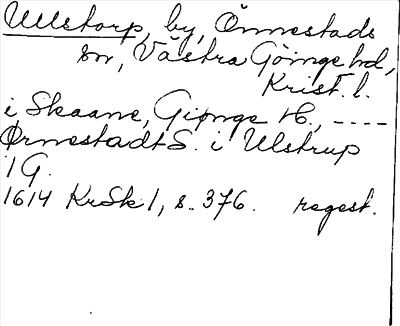 Ullstorp, by, Önnestads
sn, Västra Göinge hd,
Krist. l.
i Skaane, Giønge H., ----
Ørnestadt S. i Ulstrup
1 G.
1614 KrSk 1, s. 376. regest.